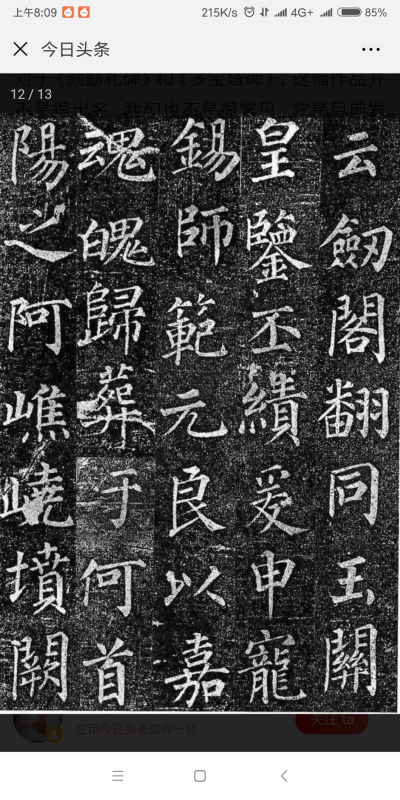 上午8:09 215K/s 4G+ 85%
今日头条
对于《颜勤礼碑》和《多宝塔碑》，这幅作品并
12 / 13
不是很出名，我们也不是很常见，它是目前发
云劒閣翻同玉關
皇鑒丕績爰申寵
錫師範元良以嘉
魂魄歸葬于何首
陽之阿嶕嶢墳闕
在用今日头条 你一起
关注 ta